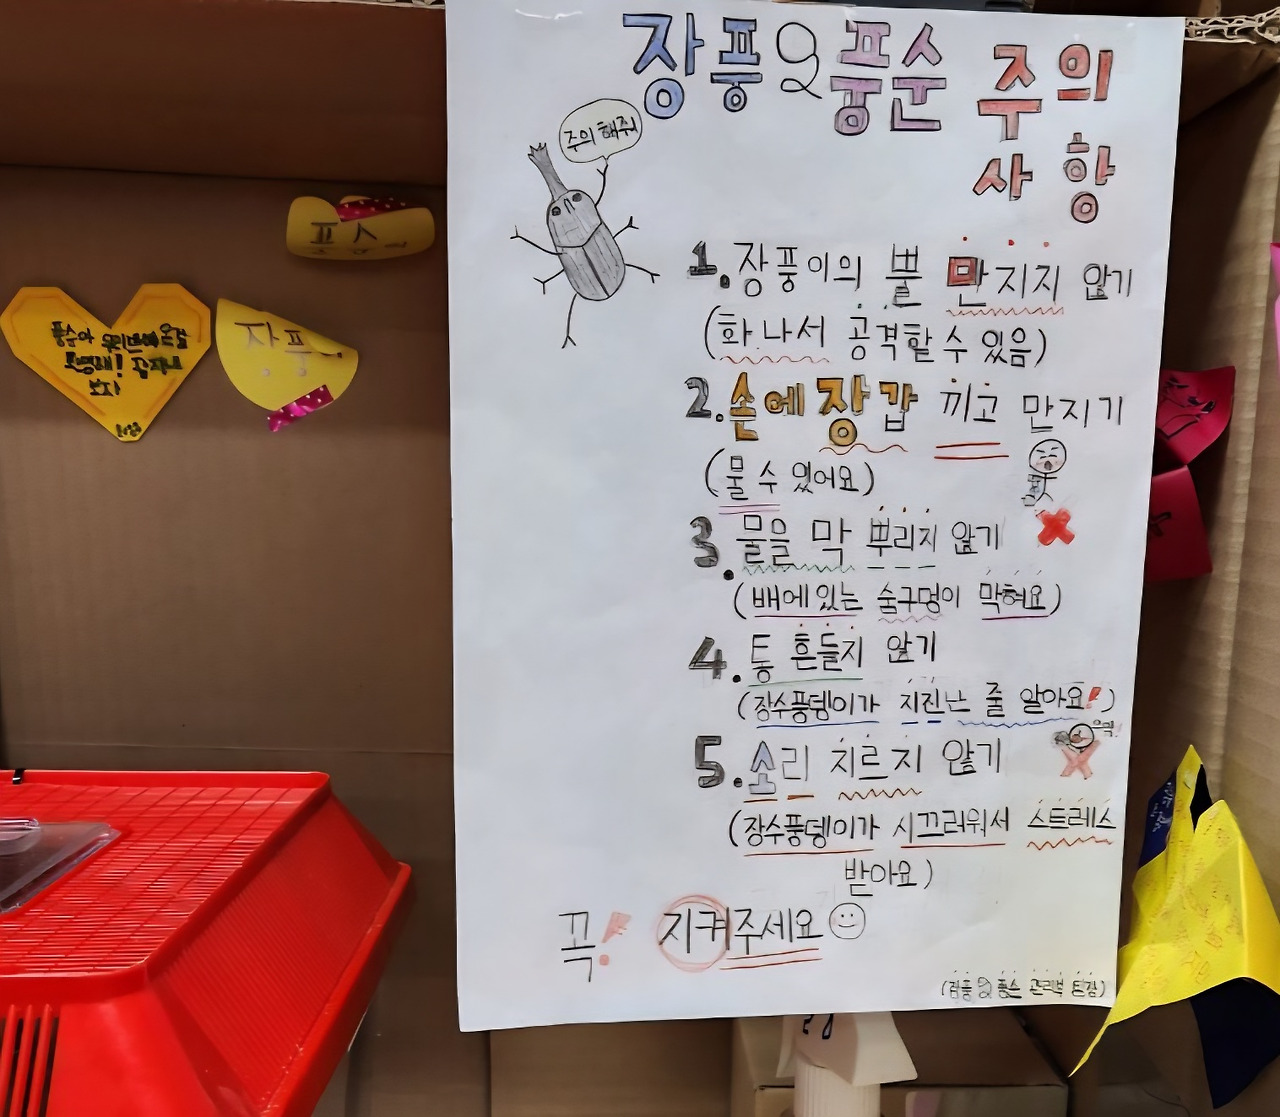 장풍 & 풍순 주의
사항
주의해줘
1. 장풍이의 뿔 만지지 않기
(화.나서 공격할 수 있음)
2. 손에 장갑 끼고 만지기
(물 수 있어요)
3. 물을 막 뿌리지 않기
(배에있는 숨구멍이 막혀요)
4. 통 흔들지 않기
(장수풍뎅이가 지진난 줄 알아요!)
5. 소리 지르지 않기
(장수풍뎅이가 시끄러워서 스트레스
받아요)
꼭! 지켜주세요
장풍
풍순아